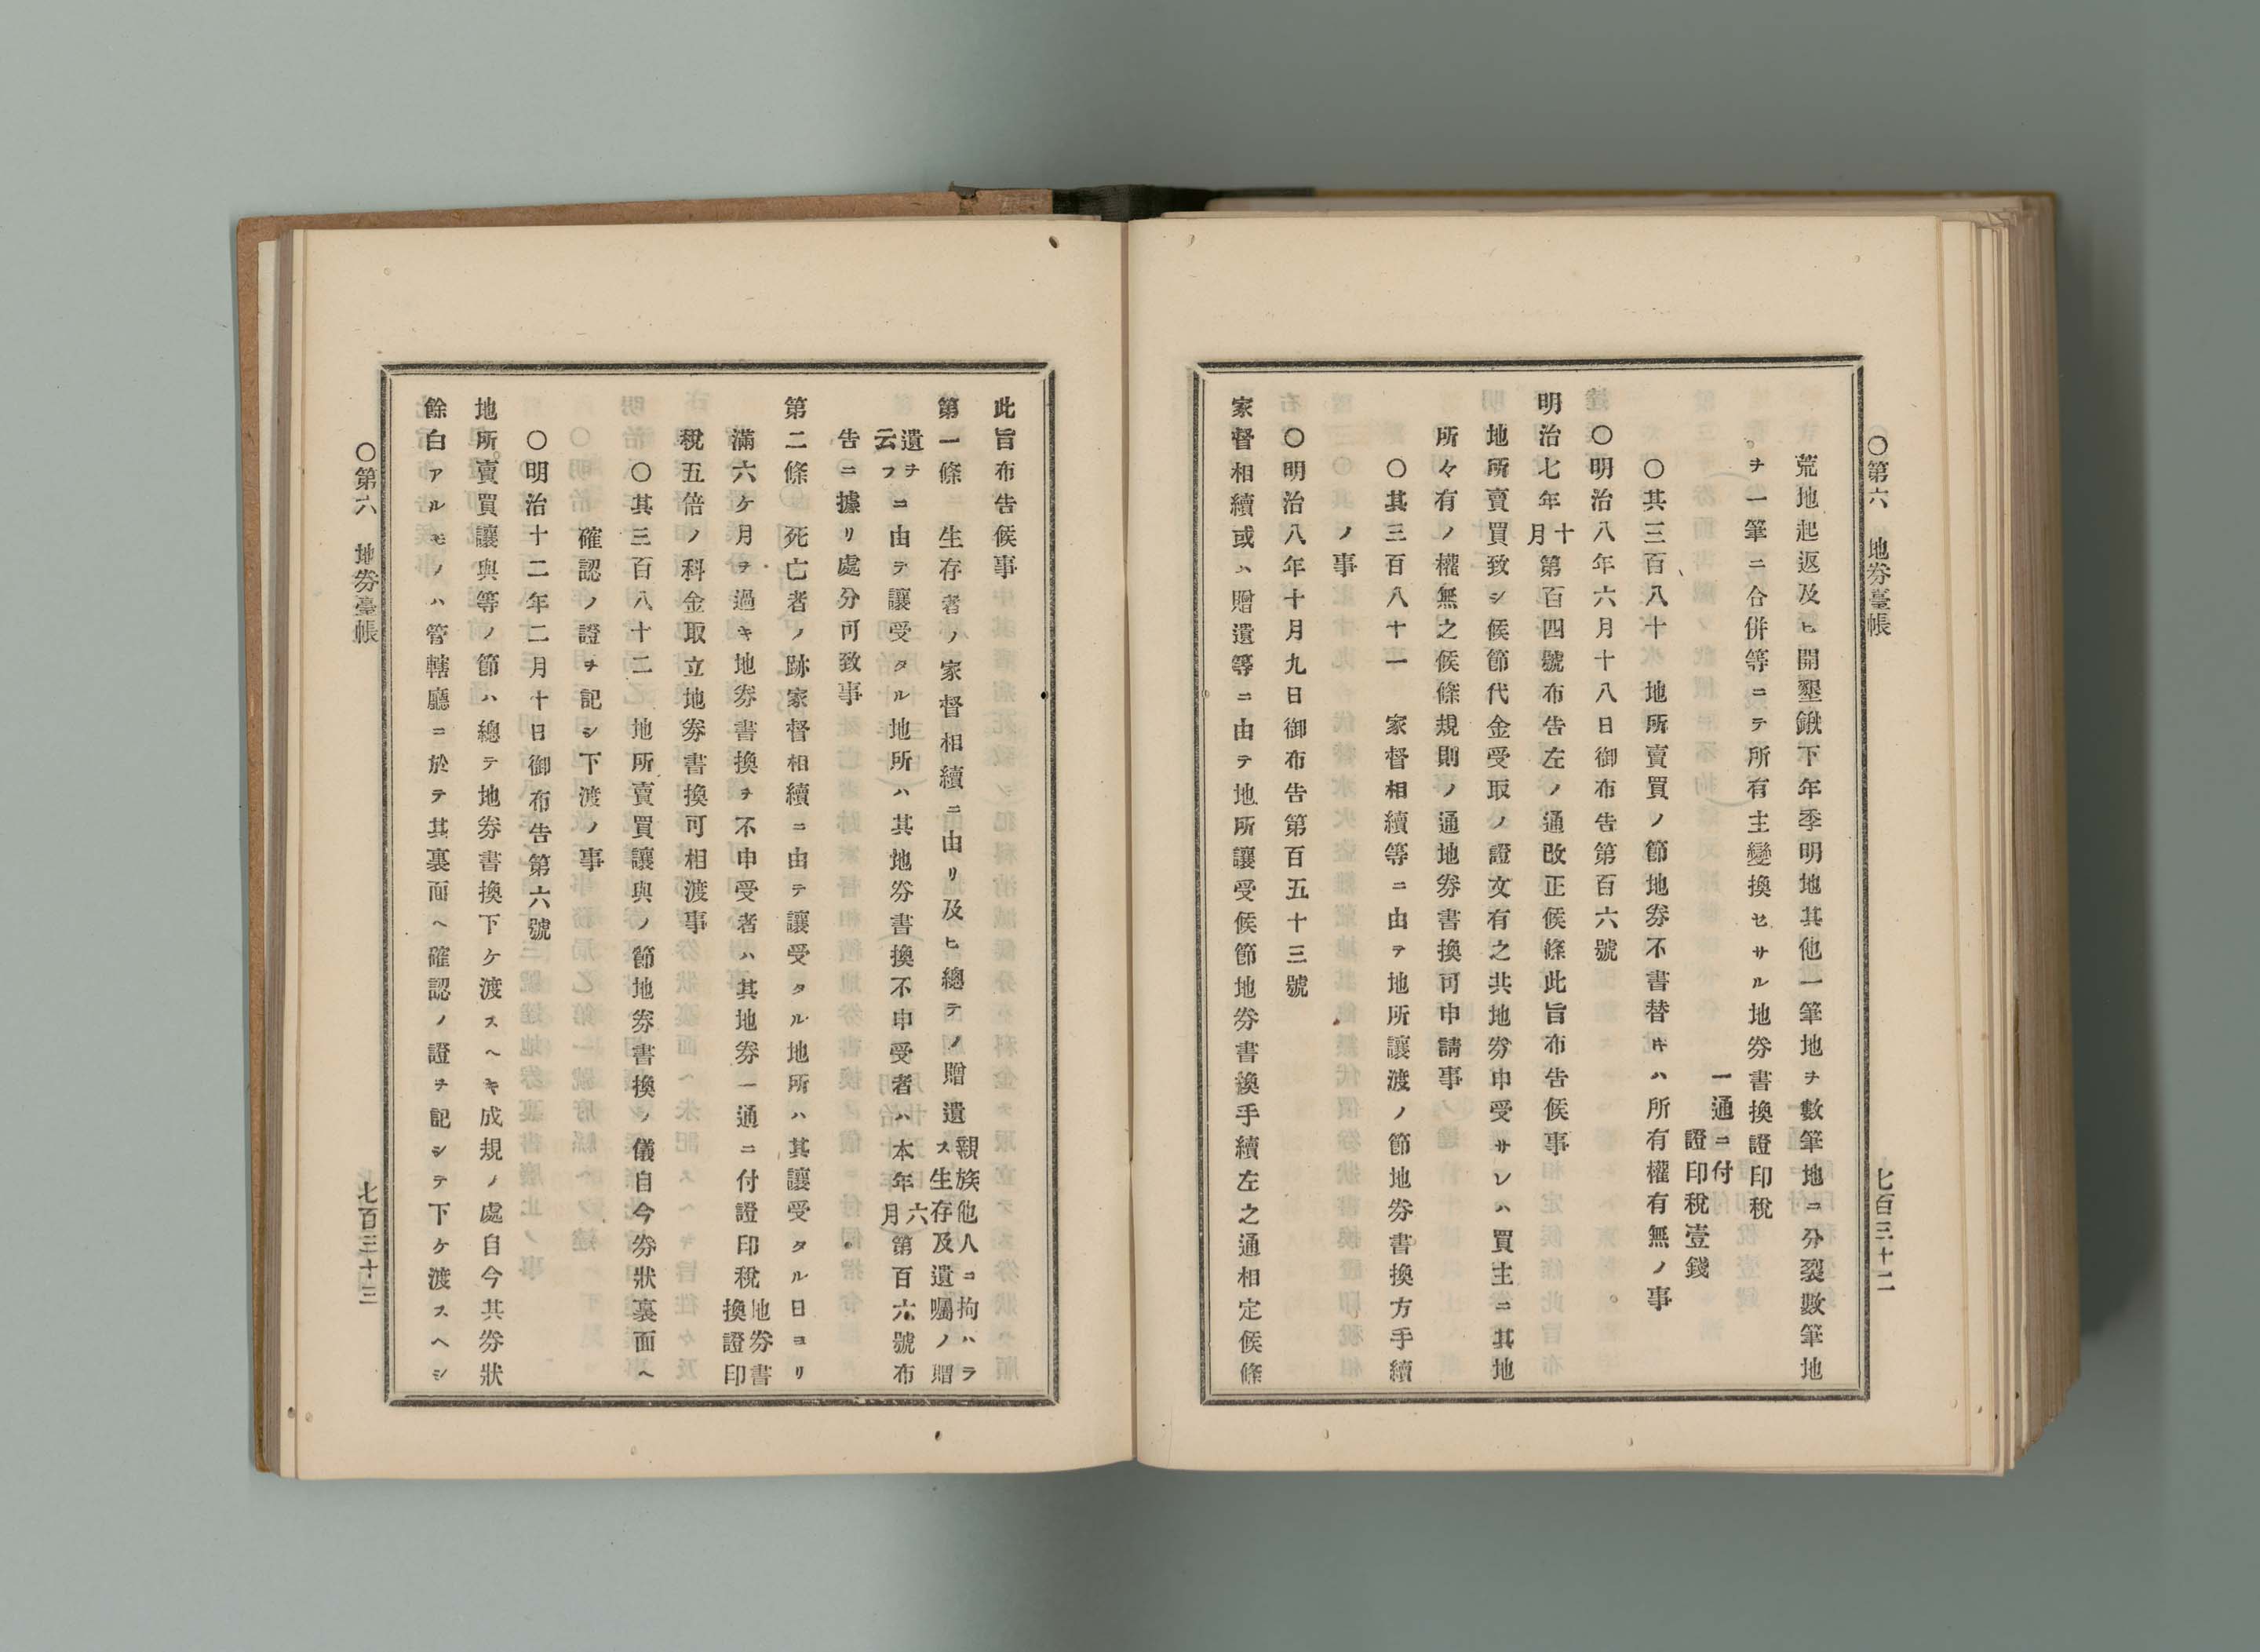 〇第六　地券臺帳　七百三十二
荒地起返及ヒ開墾鍬下年季明地其他一筆地ヲ數筆地ニ分裂數筆地
ヲ一筆ニ合併等ニテ所有主變換セサル地券書換證印稅
一通ニ付
證印稅壹錢
〇其三百八十　地所賣買ノ節地券不書替キハ所有權有無ノ事
〇明治八年六月十八日御布告第百六號
明治七年十月第百四號布告左ノ通改正候條此旨布告候事
地所賣買致シ候節代金受取ノ證文有之共地券申受サレハ買主ニ其地
所々有ノ權無之候條規則ノ通地券書換可申請事
〇其三百八十一　家督相續等ニ由テ地所讓渡ノ節地券書換方手續
ノ事
〇明治八年十月九日御布告第百五十三號
家督相續或ハ贈遺等ニ由テ地所讓受候節地券書換手續左之通相定候條
此旨布告候事
第一條　生存者ノ家督相續ニ由リ及ヒ總テノ贈遺親族他人ニ拘ハラス生存及遺囑ノ贈
遺ヲ云フニ由テ讓受タル地所ハ其地券書換不申受者ハ本年六月第百六號布
告ニ據リ處分可致事
第二條　死亡者ノ跡家督相續ニ由テ讓受タル地所ハ其讓受タル日ヨリ
滿六ケ月ヲ過キ地券書換ヲ不申受者ハ其地券一通ニ付證印稅地券書換證印
稅五倍ノ科金取立地券書換可相渡事
〇其三百八十二　地所賣買讓與ノ節地券書換ノ儀自今券狀裏面ヘ
確認ノ證ヲ記シ下渡ノ事
〇明治十二年二月十日御布告第六號
地所賣買讓與等ノ節ハ總テ地券書換下ケ渡スヘキ成規ノ處自今其券狀
餘白アルモノハ管轄廳ニ於テ其裏面ヘ確認ノ證ヲ記シテ下ケ渡スヘシ
〇第六　地券臺帳　七百三十三